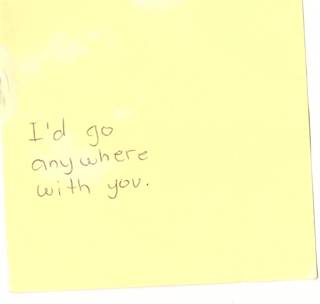 I'd go
anywhere
with you.